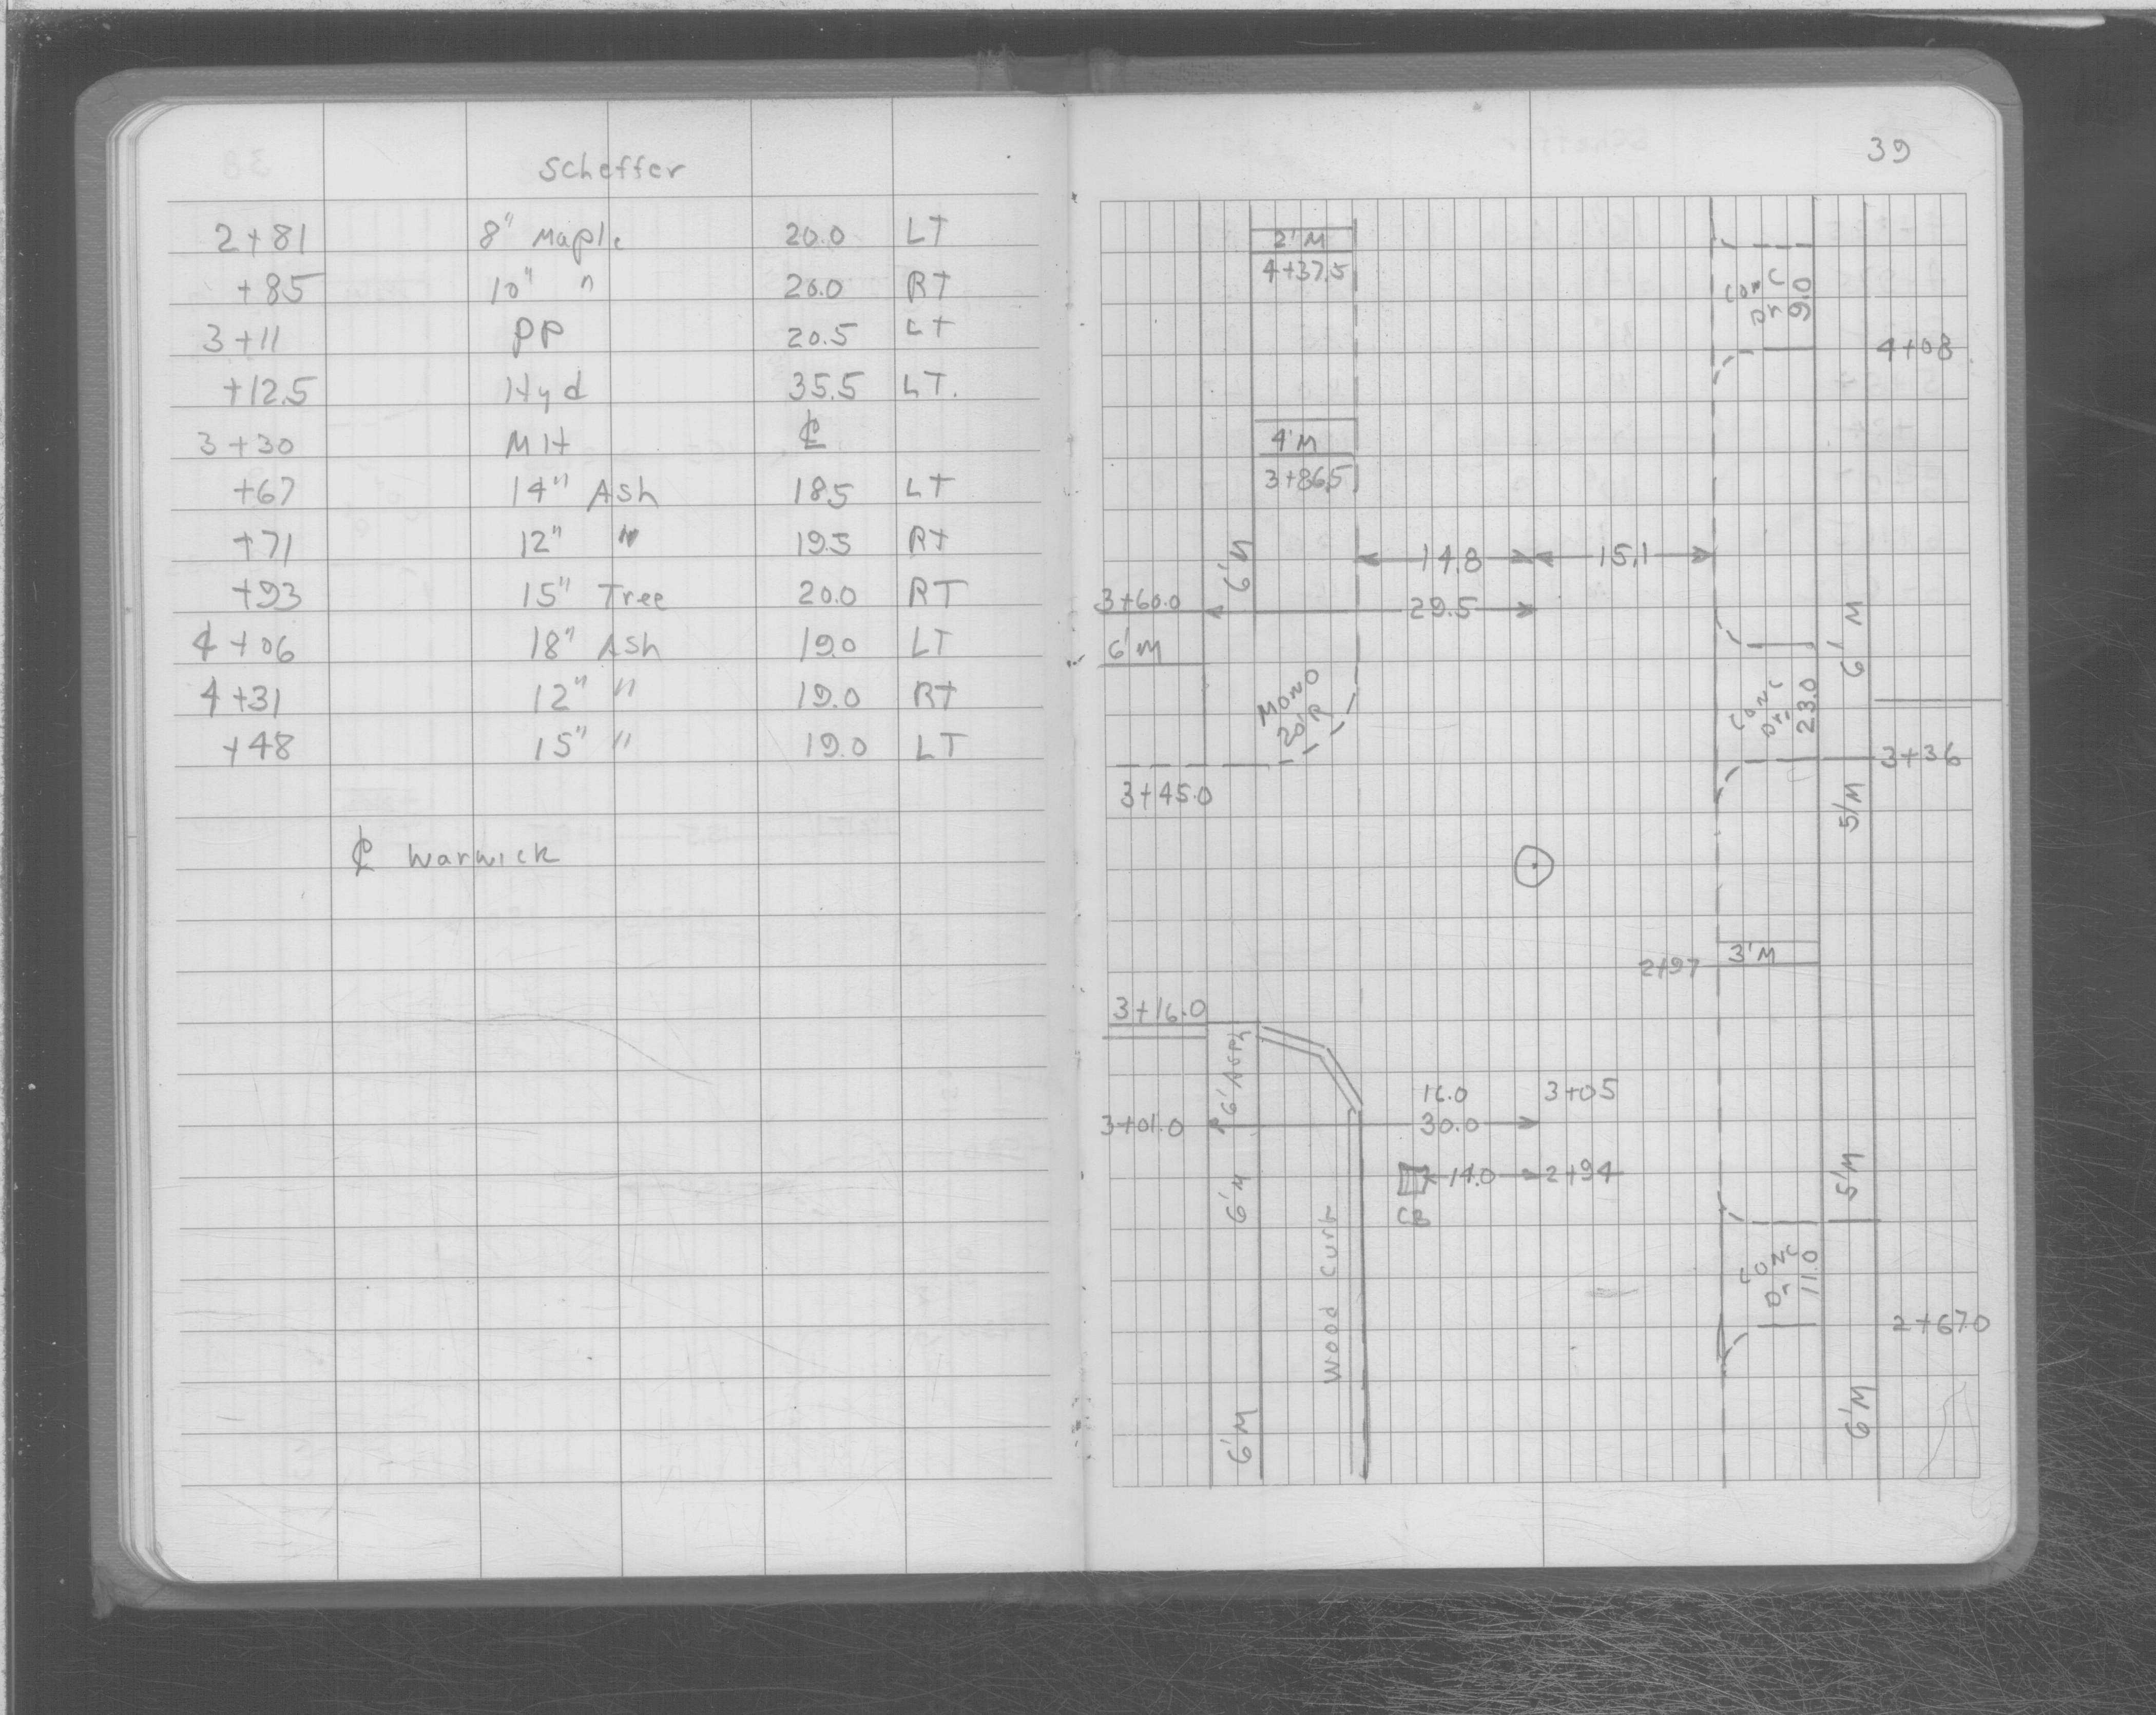 Scheffer
2+81 8" Maple 20.0 LT
+85 10" " 20.0 RT
3+11 PP 20.5 LT
+12.5 Hyd 35.5 LT.
3+30 MH ℄
+67 14" Ash 18.5 LT
+71 12" " 19.5 RT
+93 15" Tree 20.0 RT
4+06 18" Ash 19.0 LT
4+31 12" " 19.0 RT
+48 15" " 19.0 LT
℄ Warwick
39
2'M
4+37.5
Conc
Dr
9.0
4+08
4'M
3+86.5
6'M
14.8 15.1
3+60.0 29.5
6'M
6'M
Mono
20'R
Conc
Dr.
23.0
3+36
3+45.0
5'M
3'M
2+97
3+16.0
6' Asph
16.0 3+05
3+01.0 30.0
14.0 2+94
CB
6'M
5'M
Wood Curb
Conc
Dr
11.0
2+67.0
6'M
6'M